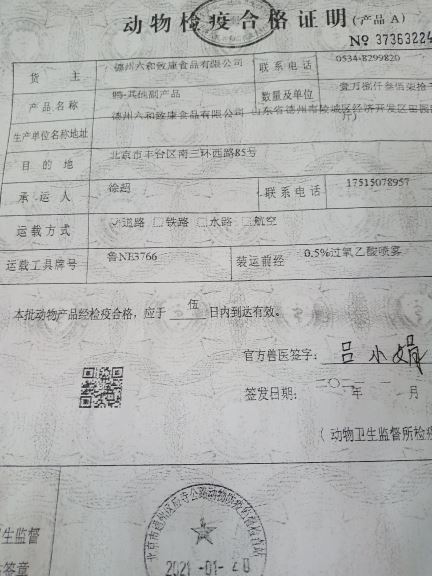 动物检疫合格证明(产品 A)
№ 37363224
货 主 德州六和致康食品有限公司 联系电话 0534-8299820
产品名称 鸭-其他副产品 数量及单位
生产单位名称地址 德州六和致康食品有限公司 山东省德州市陵城区经济开发区
目的地 北京市丰台区南三环西路85号
承运人 徐超 联系电话 17515078957
运载方式 ✓道路 □铁路 □水路 □航空
运载工具牌号 鲁NE3766 装运前经 0.5%过氧乙酸喷雾
本批动物产品经检疫合格，应于 伍 日内到达有效。
官方兽医签字： 吕小娟
签发日期： 二〇 年 月
(动物卫生监督所检疫
生监督
签章
2021-01-20